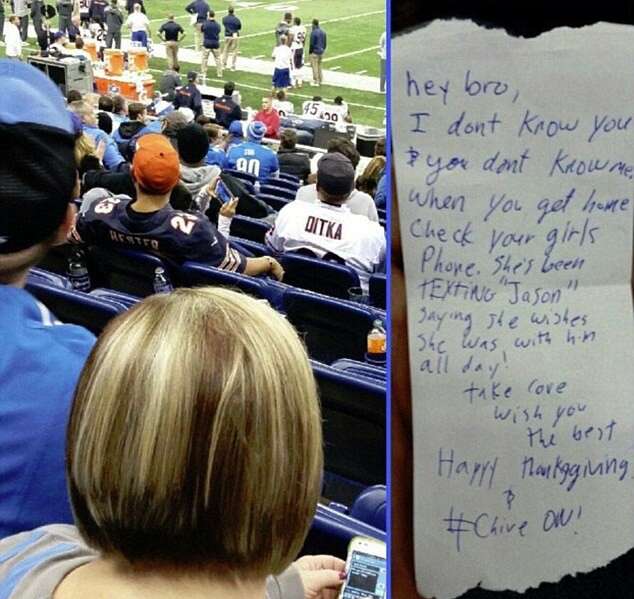 45
90
HESTER
2
DITKA
hey bro,
I dont know you
& you dont know me,
when you get home
check your girls
Phone. She's been
TEXTING "Jason"
Saying she wishes
She was with him
all day!
take care
wish you
the best
Happy thanksgiving
&
#Chive ON!